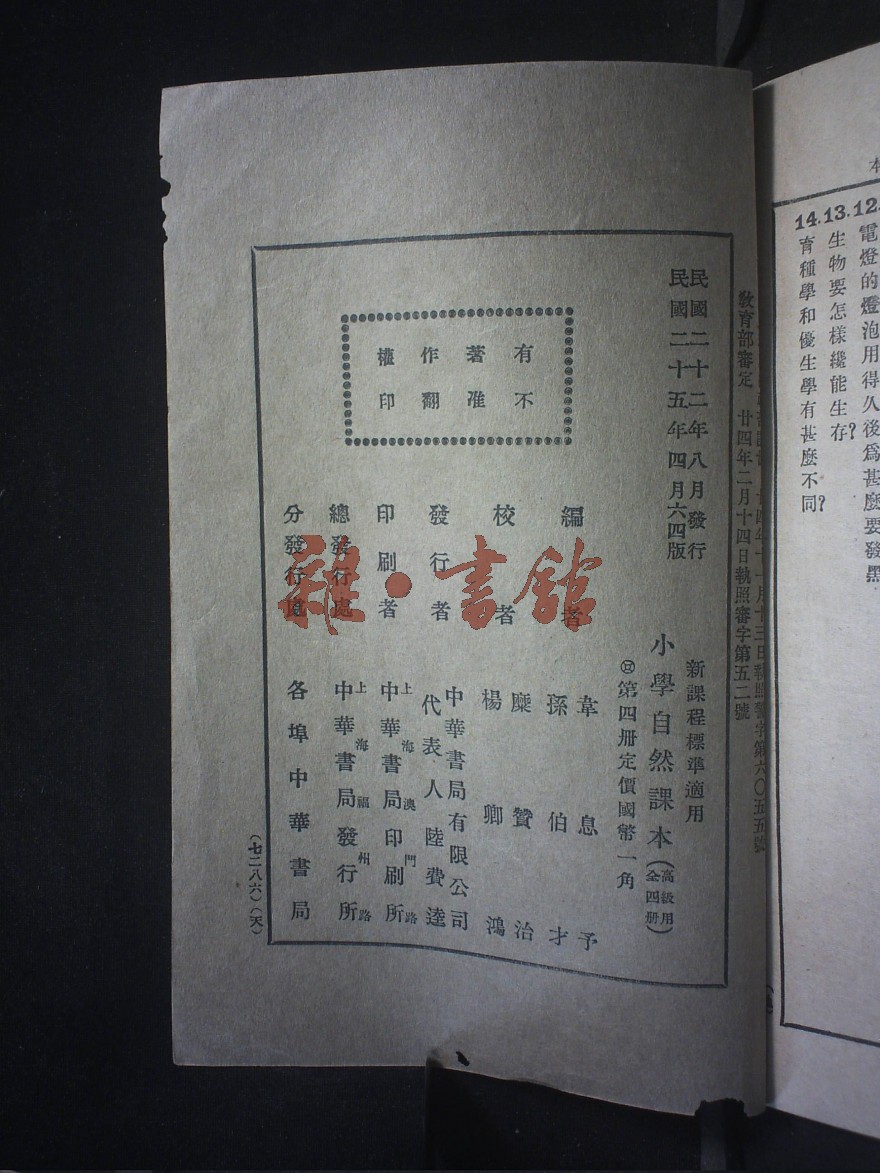 本
12.電燈的燈泡用得久後爲甚麽要發黑
13.生物要怎樣纔能生存?
14.育種學和優生學有甚麽不同?
教育部審定 廿四年二月十四日執照審字第五二號
民國二十二年八月發行
民國二十五年四月六四版
有著作權
不准翻印
新課程標準適用
小學自然課本(高級用全四册)
第四册定價國幣一角
編者 韋息予
孫伯才
校者 糜贊治
楊卿鴻
發行者 中華書局有限公司
代表人陸費逵
印刷者 上海澳門路
中華書局印刷所
總發行處 上海福州路
中華書局發行所
分發行處 各埠中華書局
(七二八六)(天)
雜·書館